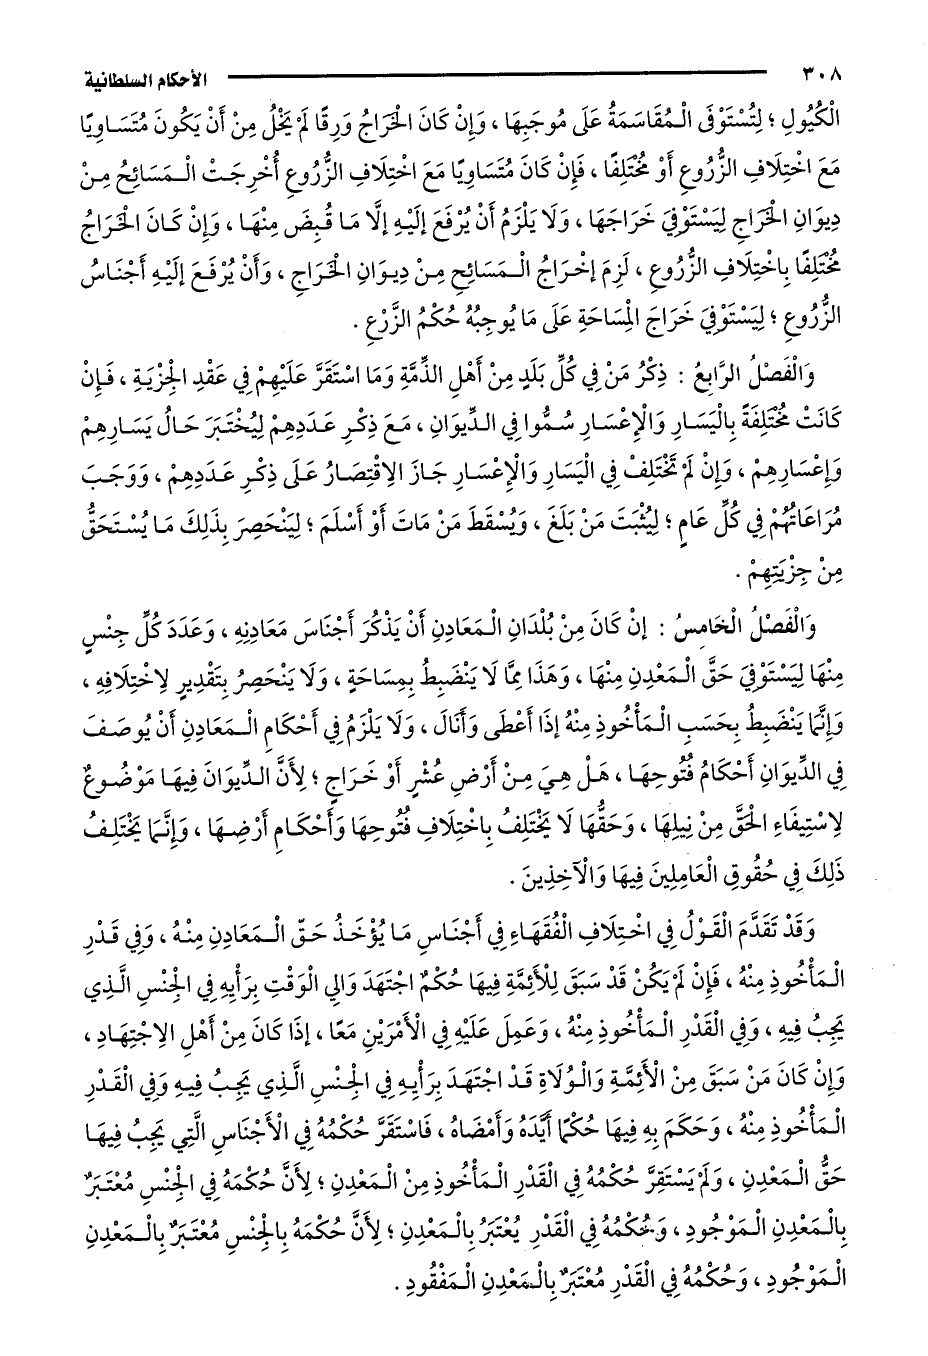 ٣٠٨ الأحكام السلطانية
الْكُيُولِ ؛ لِتُسْتَوْفَى الْمُقَاسَمَةُ عَلَى مُوجَبِهَا ، وَإِنْ كَانَ الْخَرَاجُ وَرِقًا لَمْ يَخْلُ مِنْ أَنْ يَكُونَ مُتَسَاوِيًا
مَعَ اخْتِلَافِ الزُّرُوعِ أَوْ مُخْتَلِفًا ، فَإِنْ كَانَ مُتَسَاوِيًا مَعَ اخْتِلَافِ الزُّرُوعِ أُخْرِجَتْ الْمَسَائِحُ مِنْ
دِيوَانِ الْخَرَاجِ لِيَسْتَوْفِيَ خَرَاجَهَا ، وَلَا يَلْزَمُ أَنْ يُرْفَعَ إِلَيْهِ إِلَّا مَا قُبِضَ مِنْهَا ، وَإِنْ كَانَ الْخَرَاجُ
مُخْتَلِفًا بِاخْتِلَافِ الزُّرُوعِ ، لَزِمَ إخْرَاجُ الْمَسَائِحِ مِنْ دِيوَانِ الْخَرَاجِ ، وَأَنْ يُرْفَعَ إلَيْهِ أَجْنَاسُ
الزُّرُوعِ ؛ لِيَسْتَوْفِيَ خَرَاجَ الْمِسَاحَةِ عَلَى مَا يُوجِبُهُ حُكْمُ الزَّرْعِ .
وَالْفَصْلُ الرَّابِعُ : ذِكْرُ مَنْ فِي كُلِّ بَلَدٍ مِنْ أَهْلِ الذِّمَّةِ وَمَا اسْتَقَرَّ عَلَيْهِمْ فِي عَقْدِ الْجِزْيَةِ ، فَإِنْ
كَانَتْ مُخْتَلِفَةً بِالْيَسَارِ وَالْإِعْسَارِ سُمُّوا فِي الدِّيوَانِ ، مَعَ ذِكْرِ عَدَدِهِمْ لِيُخْتَبَرَ حَالُ يَسَارِهِمْ
وَإِعْسَارِهِمْ ، وَإِنْ لَمْ تَخْتَلِفْ فِي الْيَسَارِ وَالْإِعْسَارِ جَازَ الِاقْتِصَارُ عَلَى ذِكْرِ عَدَدِهِمْ ، وَوَجَبَ
مُرَاعَاتُهُمْ فِي كُلِّ عَامٍ ؛ لِيُثْبَتَ مَنْ بَلَغَ ، وَيُسْقَطَ مَنْ مَاتَ أَوْ أَسْلَمَ ؛ لِيَنْحَصِرَ بِذَلِكَ مَا يُسْتَحَقُّ
مِنْ جِزْيَتِهِمْ .
وَالْفَصْلُ الْخَامِسُ : إنْ كَانَ مِنْ بُلْدَانِ الْمَعَادِنِ أَنْ يَذْكُرَ أَجْنَاسَ مَعَادِنِهِ ، وَعَدَدَ كُلِّ جِنْسٍ
مِنْهَا لِيَسْتَوْفِيَ حَقَّ الْمَعْدِنِ مِنْهَا ، وَهَذَا مِمَّا لَا يَنْضَبِطُ بِمِسَاحَةٍ ، وَلَا يَنْحَصِرُ بِتَقْدِيرٍ لِاخْتِلَافِهِ ،
وَإِنَّمَا يَنْضَبِطُ بِحَسَبِ الْمَأْخُوذِ مِنْهُ إذَا أَعْطَى وَأَنَالَ ، وَلَا يَلْزَمُ فِي أَحْكَامِ الْمَعَادِنِ أَنْ يُوصَفَ
فِي الدِّيوَانِ أَحْكَامُ فُتُوحِهَا ، هَلْ هِيَ مِنْ أَرْضِ عُشْرٍ أَوْ خَرَاجٍ ؛ لِأَنَّ الدِّيوَانَ فِيهَا مَوْضُوعٌ
لِاسْتِيفَاءِ الْحَقِّ مِنْ نِيلِهَا ، وَحَقُّهَا لَا يَخْتَلِفُ بِاخْتِلَافِ فُتُوحِهَا وَأَحْكَامِ أَرْضِهَا ، وَإِنَّمَا يَخْتَلِفُ
ذَلِكَ فِي حُقُوقِ الْعَامِلِينَ فِيهَا وَالْآخِذِينَ .
وَقَدْ تَقَدَّمَ الْقَوْلُ فِي اخْتِلَافِ الْفُقَهَاءِ فِي أَجْنَاسِ مَا يُؤْخَذُ حَقّ الْمَعَادِنِ مِنْهُ ، وَفِي قَدْرِ
الْمَأْخُوذِ مِنْهُ ، فَإِنْ لَمْ يَكُنْ قَدْ سَبَقَ لِلْأَئِمَّةِ فِيهَا حُكْمٌ اجْتَهَدَ وَالِي الْوَقْتِ بِرَأْيِهِ فِي الْجِنْسِ الَّذِي
يَجِبُ فِيهِ ، وَفِي الْقَدْرِ الْمَأْخُوذِ مِنْهُ ، وَعَمِلَ عَلَيْهِ فِي الْأَمْرَيْنِ مَعًا ، إذَا كَانَ مِنْ أَهْلِ الِاجْتِهَادِ ،
وَإِنْ كَانَ مَنْ سَبَقَ مِنْ الْأَئِمَّةِ وَالْوُلَاةِ قَدْ اجْتَهَدَ بِرَأْيِهِ فِي الْجِنْسِ الَّذِي يَجِبُ فِيهِ وَفِي الْقَدْرِ
الْمَأْخُوذِ مِنْهُ ، وَحَكَمَ بِهِ فِيهَا حُكْمًا أَيَّدَهُ وَأَمْضَاهُ ، فَاسْتَقَرَّ حُكْمُهُ فِي الْأَجْنَاسِ الَّتِي يَجِبُ فِيهَا
حَقُّ الْمَعْدِنِ ، وَلَمْ يَسْتَقِرَّ حُكْمُهُ فِي الْقَدْرِ الْمَأْخُوذِ مِنْ الْمَعْدِنِ ؛ لِأَنَّ حُكْمَهُ فِي الْجِنْسِ مُعْتَبَرٌ
بِالْمَعْدِنِ الْمَوْجُودِ ، وَحُكْمُهُ فِي الْقَدْرِ يُعْتَبَرُ بِالْمَعْدِنِ ؛ لِأَنَّ حُكْمَهُ بِالْجِنْسِ مُعْتَبَرٌ بِالْمَعْدِنِ
الْمَوْجُودِ ، وَحُكْمُهُ فِي الْقَدْرِ مُعْتَبَرٌ بِالْمَعْدِنِ الْمَفْقُودِ .